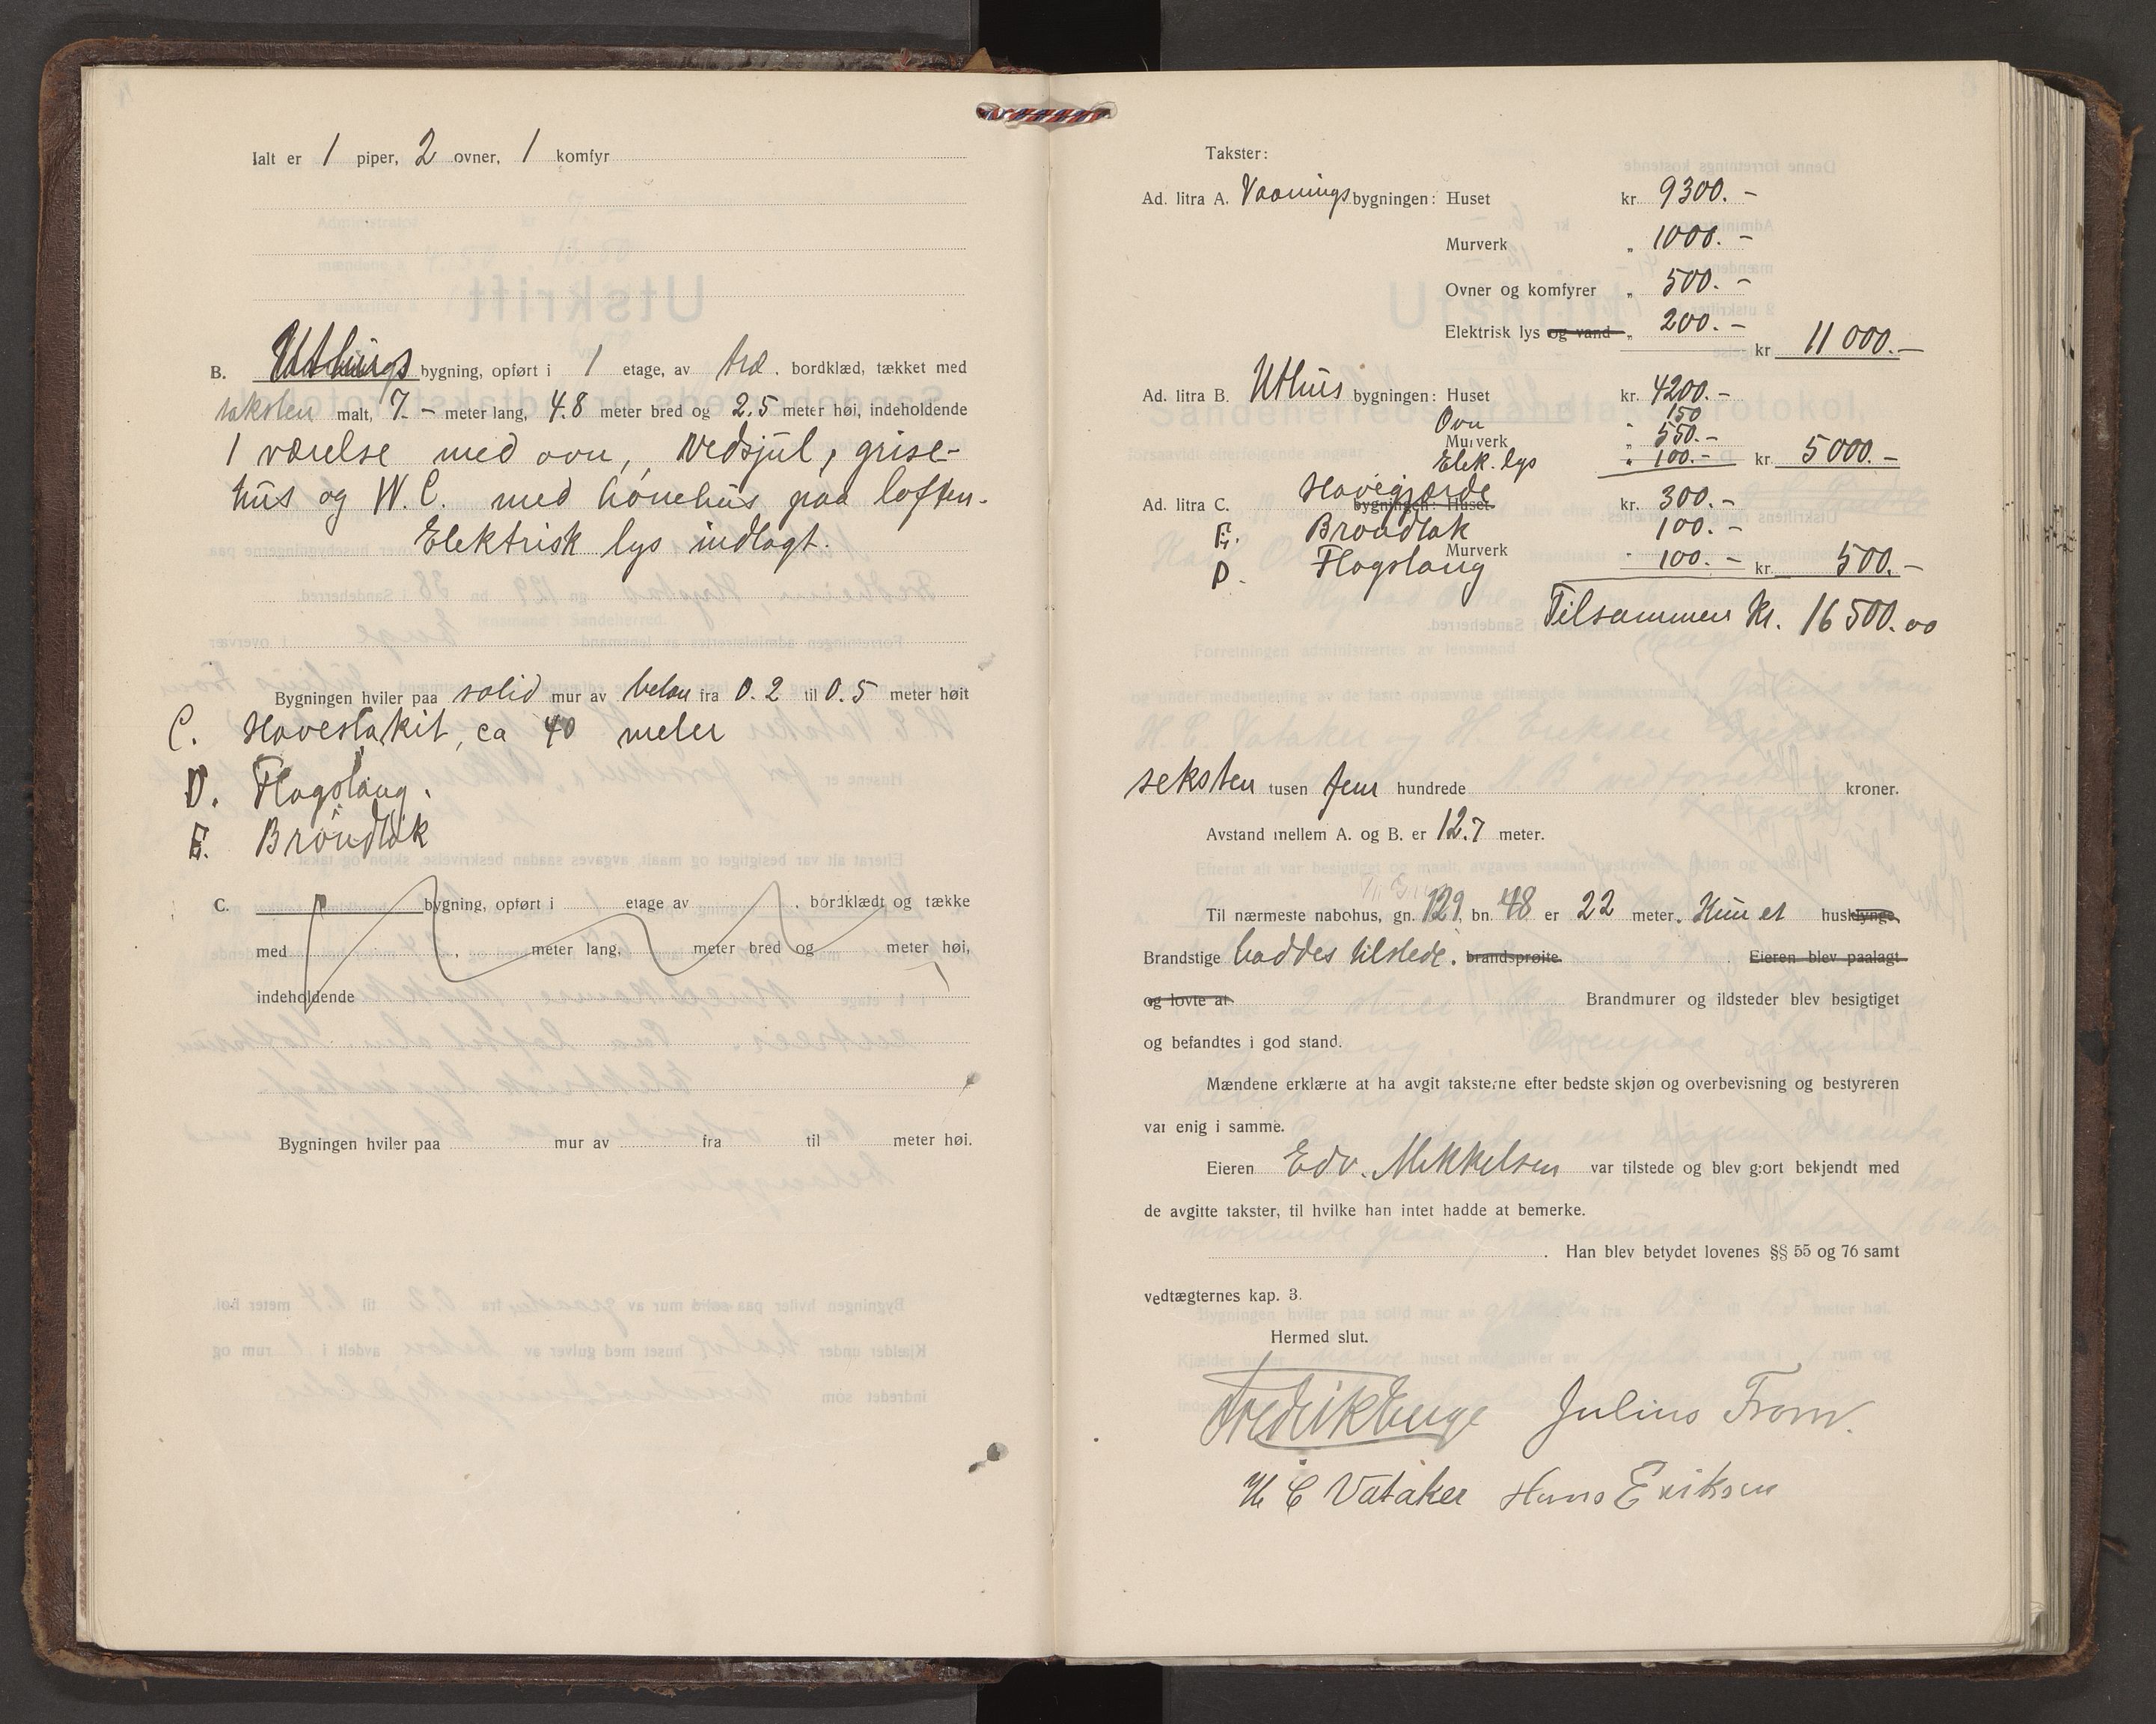 Ialt er 1 piper, 2 ovner, 1 komfyr
B. Uthus bygning, opført i 1 etage, av træ. bordklæd, tækket med
taksten malt, 7.- meter lang, 4.8 meter bred og 2.5 meter høi, indeholdende
1 værelse med ovn, vedsjul, grise-
hus og W.C. med hønehus paa loften.
Elektrisk lys indlagt.
Bygningen hviler paa solid mur av beton fra 0.2 til 0.5 meter høit
C. Havestakit, ca 40 meter
D. Flagstang.
E. Brøndlok
C. bygning, opført i etage av . bordklædt og tække
med . meter lang, meter bred og meter høi,
indeholdende
Bygningen hviler paa mur av fra til meter høi.
Takster:
Ad. litra A. Vaanings bygningen: Huset kr. 9300.-
Murverk „ 1000.-
Ovner og komfyrer „ 500.-
Elektrisk lys og vand „ 200.- kr 11 000.-
Ad. litra B. Uthus bygningen: Huset kr. 4200.-
Ovn „ 150
Murverk „ 550.-
Elek. lys „ 100.- kr. 5000.-
Ad. litra C. Havegjærde bygningen: Huset. kr. 300.-
E. Brøndlok 100.-
D. Flagstang Murverk „ 100.- kr. 500.-
Tilsammen kr. 16500.00
seksten tusen fem hundrede kroner.
Avstand mellem A. og B. er 12.7 meter.
Til nærmeste nabohus, gn. 129, bn. 48 er 22 meter. Kun et husklynge,
Brandstige haddes tilstede. brandsprøite. Eieren blev paalagt
og lovte at Brandmurer og ildsteder blev besigtiget
og befandtes i god stand.
Mændene erklærte at ha avgit taksterne efter bedste skjøn og overbevisning og bestyreren
var enig i samme.
Eieren Edv. Mikkelsen var tilstede og blev gjort bekjendt med
de avgitte takster, til hvilke han intet hadde at bemerke.
. Han blev betydet lovenes §§ 55 og 76 samt
vedtægternes kap. 3.
Hermed slut.
Fredrik Enge Julius From.
H C Vataker Hans Eriksen